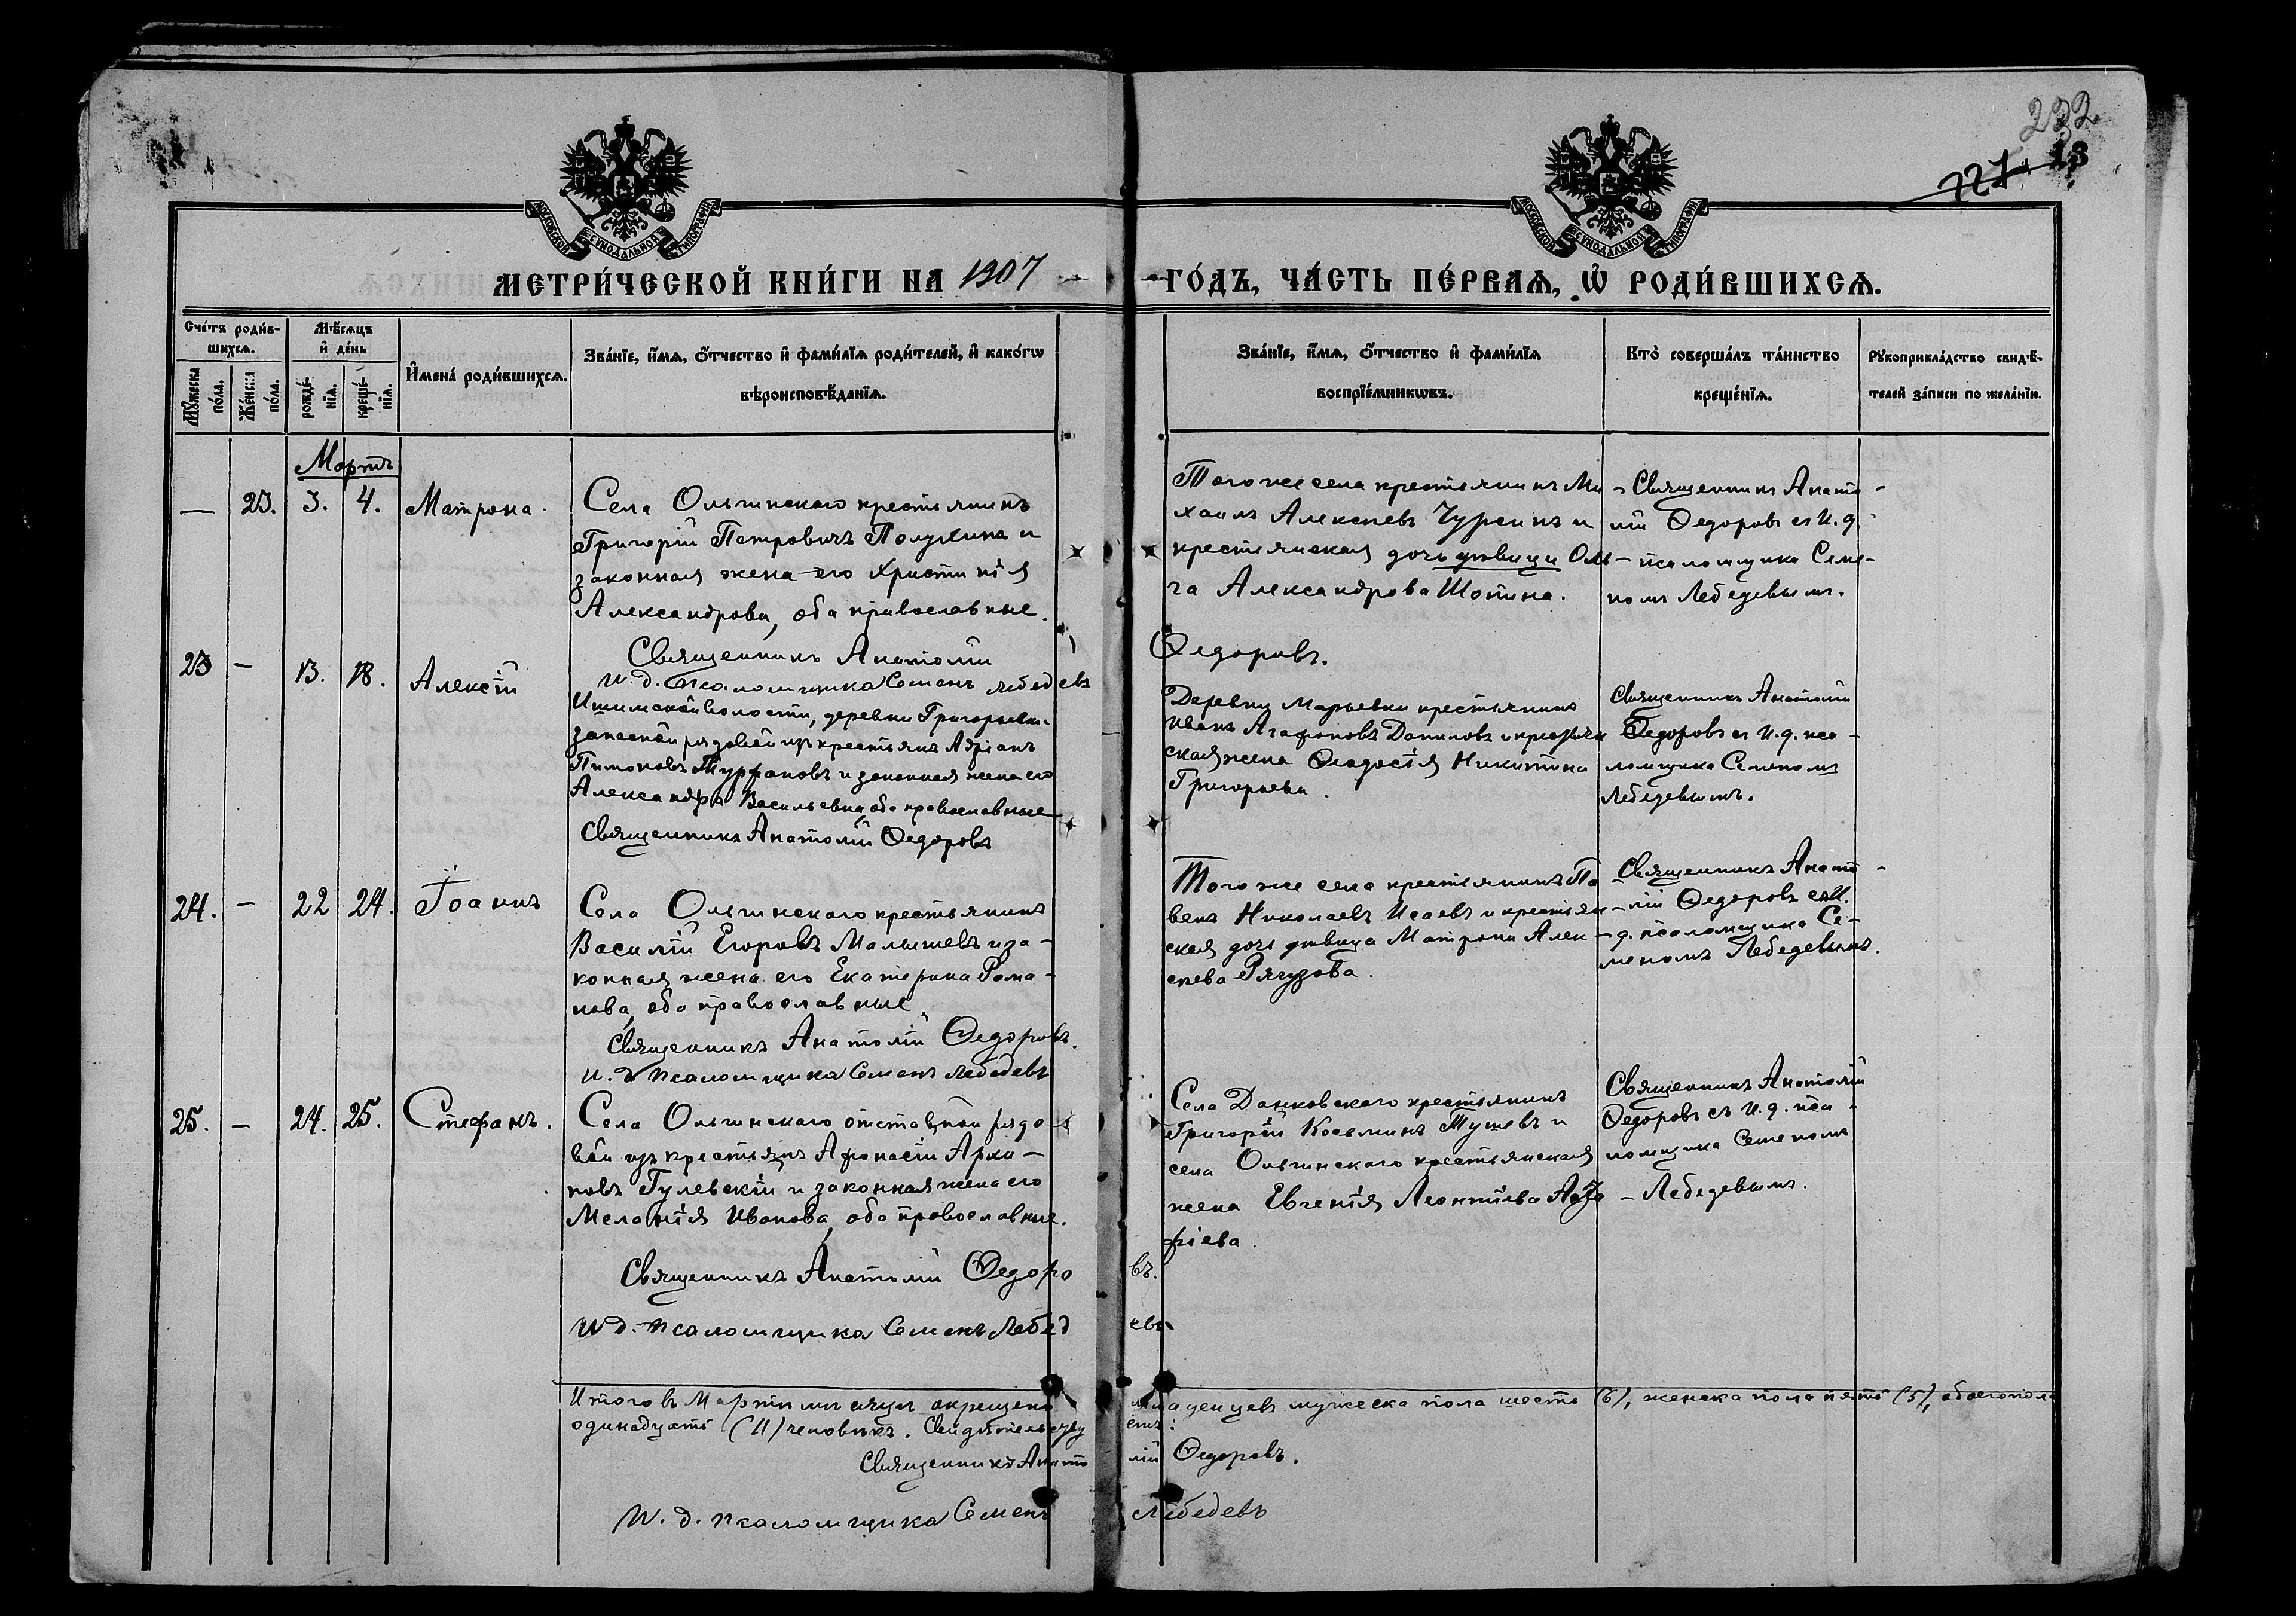 232
227 13
МОСКОВСКОЙ СѴНОДАЛЬНОЙ ТИПОГРАФІИ
МОСКОВСКОЙ СѴНОДАЛЬНОЙ ТИПОГРАФІИ
МЕТРИ́ЧЕСКОЙ КНИ́ГИ НА 1907 ГО́ДЪ, ЧА́СТЬ ПЕ́РВАѦ, Ѡ҆ РОДИ́ВШИХСѦ.
Сче́тъ роди́в-
шихсѧ.
Мꙋ́жеска по́ла.
Же́нска по́ла.
Мѣ́сѧцъ
и҆ де́нь
рожде́-
нїѧ.
креще́-
нїѧ.
И҆мена̀ роди́вшихсѧ.
Зва́нїе, и҆́мѧ, ѻ҆́тчество и҆ фами́лїѧ роди́телей, и҆ како́гѡ
вѣроисповѣ́данїѧ.
Зва́нїе, и҆́мѧ, ѻ҆́тчество и҆ фами́лїѧ
воспрїе́мникѡвъ.
Кто̀ соверша́лъ та́инство
креще́нїѧ.
Рꙋкоприкла́дство свидѣ́-
телей за́писи по жела́нїю.
Мартъ
— 23. 3. 4. Матрона.
Села Ольгинскаго крестьянинъ
Григорій Петровичъ Полухинъ и
законная жена его Христинія
Александрова, оба православные.
Священникъ Анатолій Ѳедоровъ.
И. д. Псаломщика Семенъ Лебедевъ
Того же села крестьянинъ Ми
хаилъ Алексѣевъ Чурсинъ и
крестьянская дочь дѣвица Оль-
га Александрова Шопина.
Священникъ Анато-
лій Ѳедоровъ съ И. д.
псаломщика Семе-
номъ Лебедевымъ.
23 — 13. 18. Алексій
Ишимской волости, деревни Григорьевки
запасной рядовой изъ крестьянъ Адріанъ
Пимоновъ Турфановъ и законная жена его
Александра Васильевна, оба православные
Священникъ Анатолій Ѳедоровъ
Деревни Марьевки крестьянинъ
Иванъ Агафоновъ Даниловъ и крестьян
ская жена Ѳеодосія Никитина
Григорьева.
Священникъ Анатолій
Ѳедоровъ съ И. д. пса-
ломщика Семеномъ
Лебедевымъ.
24. — 22 24. Іоаннъ
Села Ольгинскаго крестьянинъ
Василій Егоровъ Малышевъ и за-
конная жена его Екатерина Рома-
нова, оба православные.
Священникъ Анатолій Ѳедоровъ.
И. д. Псаломщика Семенъ Лебедевъ
Того же села крестьянинъ Па
велъ Николаевъ Исаевъ и крестьян-
ская дочь дѣвица Матрона Алек-
сѣева Рягузова.
Священникъ Анато-
лій Ѳедоровъ съ И.
д. псаломщика Се-
меномъ Лебедевымъ.
25. — 24. 25. Стефанъ.
Села Ольгинскаго отставной рядо-
вой изъ крестьянъ Афонасій Архи-
повъ Гулевскій и законная жена его
Меланія Иванова, оба православные.
Священникъ Анатолій Ѳедоровъ.
И д. Псаломщика Семенъ Лебедевъ
Села Данковскаго крестьянинъ
Григорій Косьминъ Тушевъ и
села Ольгинскаго крестьянская
жена Евгенія Леонтіева
фіева.
Священникъ Анатолій
Ѳедоровъ съ И. д. пса-
ломщика Семеномъ
Лебедевымъ.
Итого въ Мартѣ мѣсяцѣ окрещено младенцевъ мужеска пола шесть (6), женска пола пять (5), обоего пола
одинадцать (11) человѣкъ. Свидѣтельствуемъ:
Священникъ Анатолій Ѳедоровъ.
И. д. псаломщика Семенъ Лебедевъ